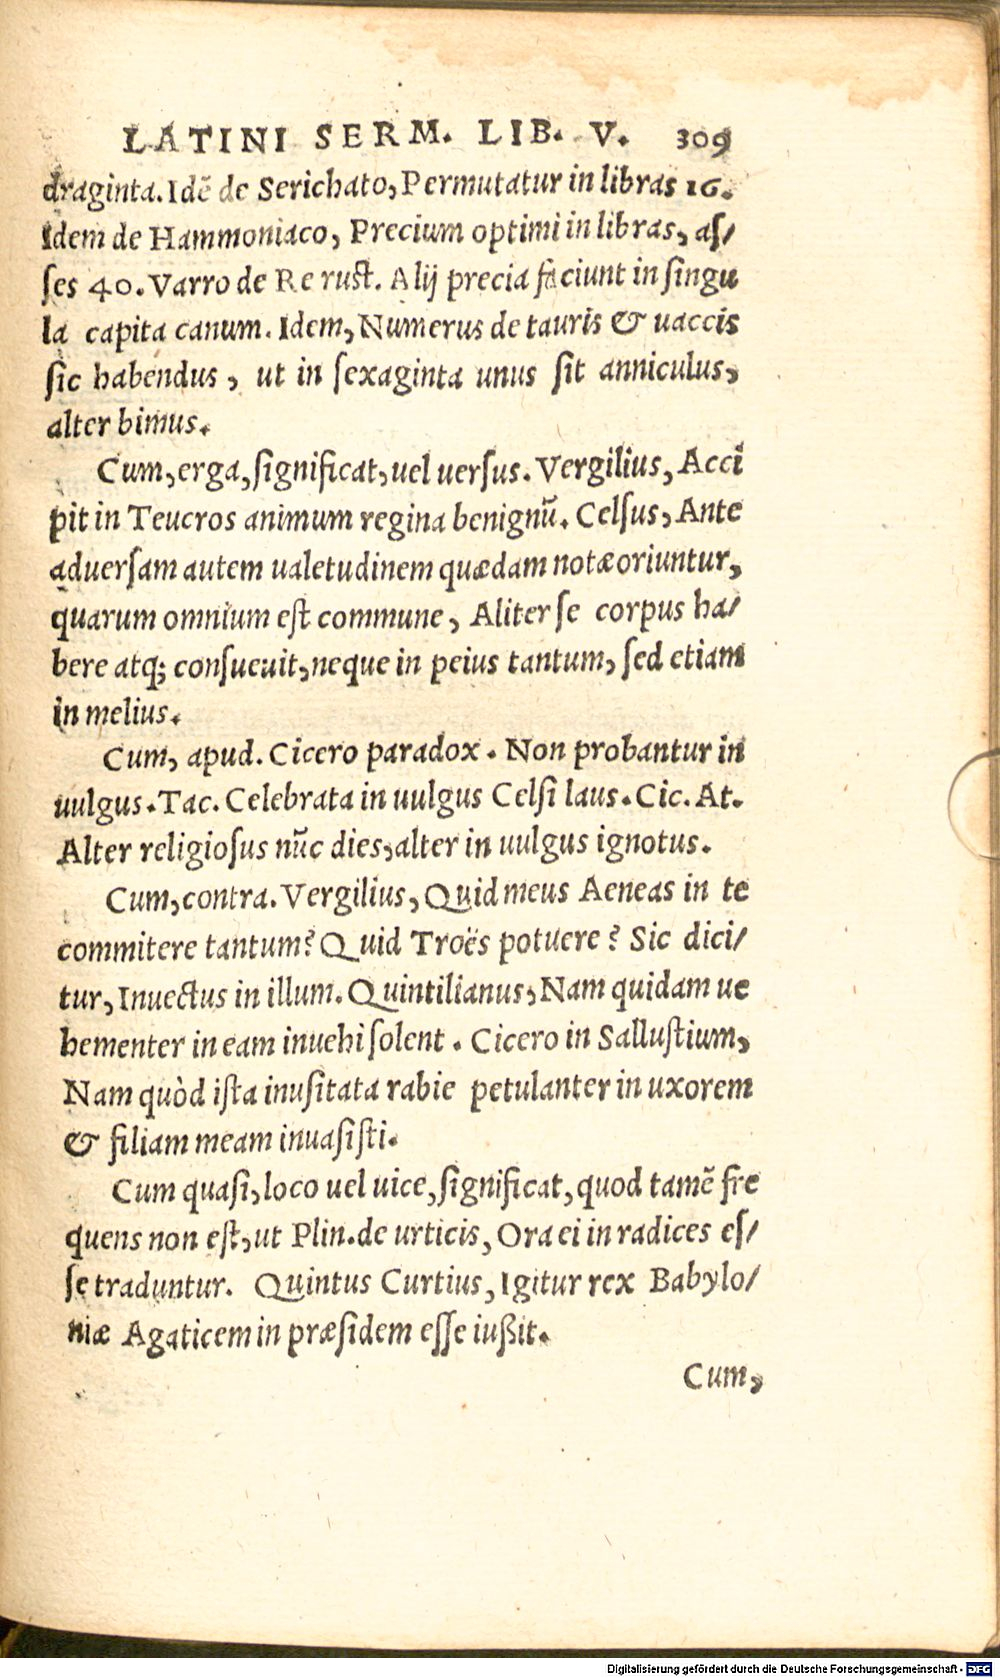 LATINI SERM. LIB. V. 309
draginta. Idē de Serichato, Permutatur in libras 16.
Idem de Hammoniaco, Precium optimi in libras, as/
ses 40. Varro de Re rust. Alij precia faciunt in singu
la capita canum. Idem, Numerus de tauris & uaccis
sic habendus, ut in sexaginta unus sit anniculus,
alter bimus.
Cum, erga, significat, uel uersus. Vergilius, Acci
pit in Teucros animum regina benignū. Celsus, Ante
aduersam autem ualetudinem quædam notæ oriuntur,
quarum omnium est commune, Aliter se corpus ha/
bere atq; consueuit, neque in peius tantum, sed etiam
in melius.
Cum, apud. Cicero paradox. Non probantur in
uulgus. Tac. Celebrata in uulgus Celsi laus. Cic. At.
Alter religiosus nūc dies, alter in uulgus ignotus.
Cum, contra. Vergilius, Quid meus Aeneas in te
commitere tantum? Quid Troës potuere? Sic dici/
tur, Inuectus in illum. Quintilianus, Nam quidam ue
hementer in eam inuehi solent. Cicero in Sallustium,
Nam quòd ista inusitata rabie petulanter in uxorem
& filiam meam inuasisti.
Cum quasi, loco uel uice, significat, quod tamē fre
quens non est, ut Plin. de urticis, Ora ei in radices es/
se traduntur. Quintus Curtius, Igitur rex Babylo/
niæ Agaticem in præsidem esse iußit.
Cum,
Digitalisierung gefördert durch die Deutsche Forschungsgemeinschaft - DFG